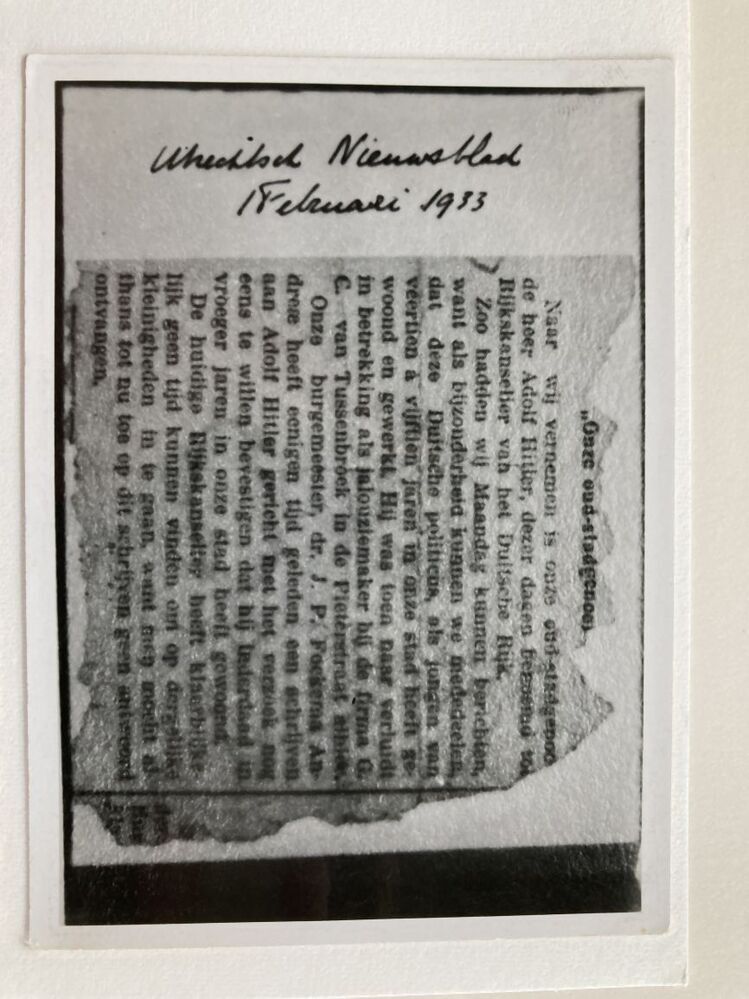 Utrechtsch Nieuwsblad
1 Februari 1933
„Onze oud-stadgenoot
Naar wij vernemen is onze oud-stadgenoo
de heer Adolf Hitler, dezer dagen benoemd tot
Rijkskanselier van het Duitsche Rijk.
Zoo hadden wij Maandag kunnen berichten,
want als bijzonderheid kunnen we mededeelen,
dat deze Duitsche politicus, als jongen van
veertien à vijftien jaren in onze stad heeft ge-
woond en gewerkt. Hij was toen naar verluidt
in betrekking als jalouziemaker bij de firma G.
C. van Tussenbroek in de Pieterstraat alhier.
Onze burgemeester, dr. J. P. Fockema An-
dreæ heeft eenigen tijd geleden een schrijven
aan Adolf Hitler gericht met het verzoek nog
eens te willen bevestigen dat hij inderdaad in
vroeger jaren in onze stad heeft gewoond.
De huidige Rijkskanselier heeft klaarblijke-
lijk geen tijd kunnen vinden om op dergelijke
kleinigheden in te gaan, want men mocht al-
thans tot nu toe op dit schrijven geen antwoord
ontvangen.